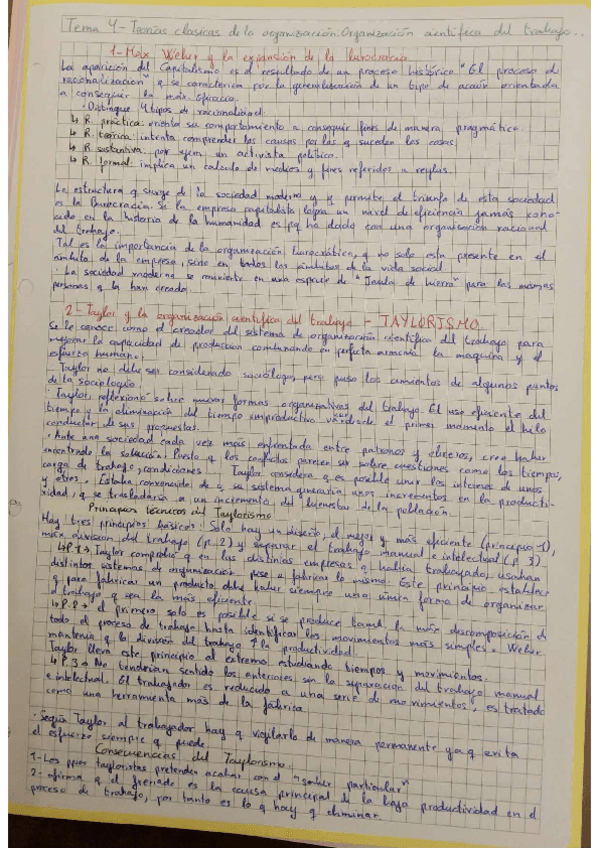 Tema 4 - Teorías clásicas de la organización. Organización científica del trabajo.
1- Max Weber y la expansión de la burocracia
La aparición del Capitalismo es el resultado de un proceso histórico "El proceso d
racionalización" q se caracteriza por la generalización de un tipo de acción orientada
a conseguir la máx. eficacia.
· Distingue 4 tipos de racionalidad:
↳ R. práctica: orienta su comportamiento a conseguir fines de manera pragmática.
↳ R. teórica: intenta comprender las causas por las q suceden las cosas.
↳ R. sustantiva: por ejem. un activista político.
↳ R. formal: implica un cálculo de medios y fines referidos a reglas.
La estructura q surge de la sociedad moderna y q permite el triunfo de esta sociedad
es la Burocracia. Si la empresa capitalista logra un nivel de eficiencia jamás cono-
cido en la historia de la humanidad es pq ha dado con una organización racional
del trabajo.
Tal es la importancia de la organización burocrática, q no solo esta presente en el
ámbito de la empresa, sino en todos los ámbitos de la vida social.
· La sociedad moderna se convierte en una especie de "Jaula de hierro" para las mismas
personas q la han creado.
2- Taylor y la organización científica del trabajo - TAYLORISMO
Se le conoce como el creador del sistema de organización científica del trabajo para
mejorar la capacidad de producción combinando en perfecta armonía la maquina y el
esfuerzo humano.
· Taylor no debe ser considerado sociólogo, pero puso los cimientos de algunos puntos
de la sociología.
· Taylor, reflexionó sobre nuevas formas organizativas del trabajo. El uso eficiente del
tiempo y la eliminación del tiempo improductivo desde el primer momento el hilo
conductor de sus propuestas.
· Ante una sociedad cada vez más enfrentada entre patronos y obreros, cree haber
encontrado la solución. Puesto q los conflictos parecen ser sobre cuestiones como los tiempos,
carga de trabajo, condiciones... Taylor considera q es posible unir los intereses de unos
y otros. Estaba convencido de q su sistema generaría unos incrementos en la producti-
vidad, q se trasladaría a un incremento del bienestar de la población.
Principios técnicos del Taylorismo
Hay tres principios básicos: Solo hay un diseño, el mejor y más eficiente (principio 1),
máx división del trabajo (p. 2) y separar el trabajo manual e intelectual (p. 3)
↳ P.1 → Taylor comprobó q en las distintas empresas q había trabajado, usaban
distintos sistemas de organización, pese a fabricar lo mismo. Este principio establece
q para fabricar un producto debe haber siempre una única forma de organizar
el trabajo q sea la más eficiente.
↳ P.2 → el primero, solo es posible si se produce tamb la máx descomposición d
todo el proceso de trabajo hasta identificar los movimientos más simples. Weber
mantenía q la división del trabajo ↑ la productividad.
Taylor lleva este principio al extremo estudiando tiempos y movimientos.
↳ P.3 → No tendrían sentido los anteriores sin la separación del trabajo manual
e intelectual. El trabajador es reducido a una serie de movimientos, es tratado
como una herramienta más de la fábrica.
· Según Taylor al trabajador hay q vigilarlo de manera permanente ya q evita
el esfuerzo siempre q puede.
Consecuencias del Taylorismo
1- Los ppios tayloristas pretenden acabar con el "saber particular"
2- afirma q el frenado es la causa principal de la baja productividad en el
proceso de trabajo, por tanto es lo q hay q eliminar.